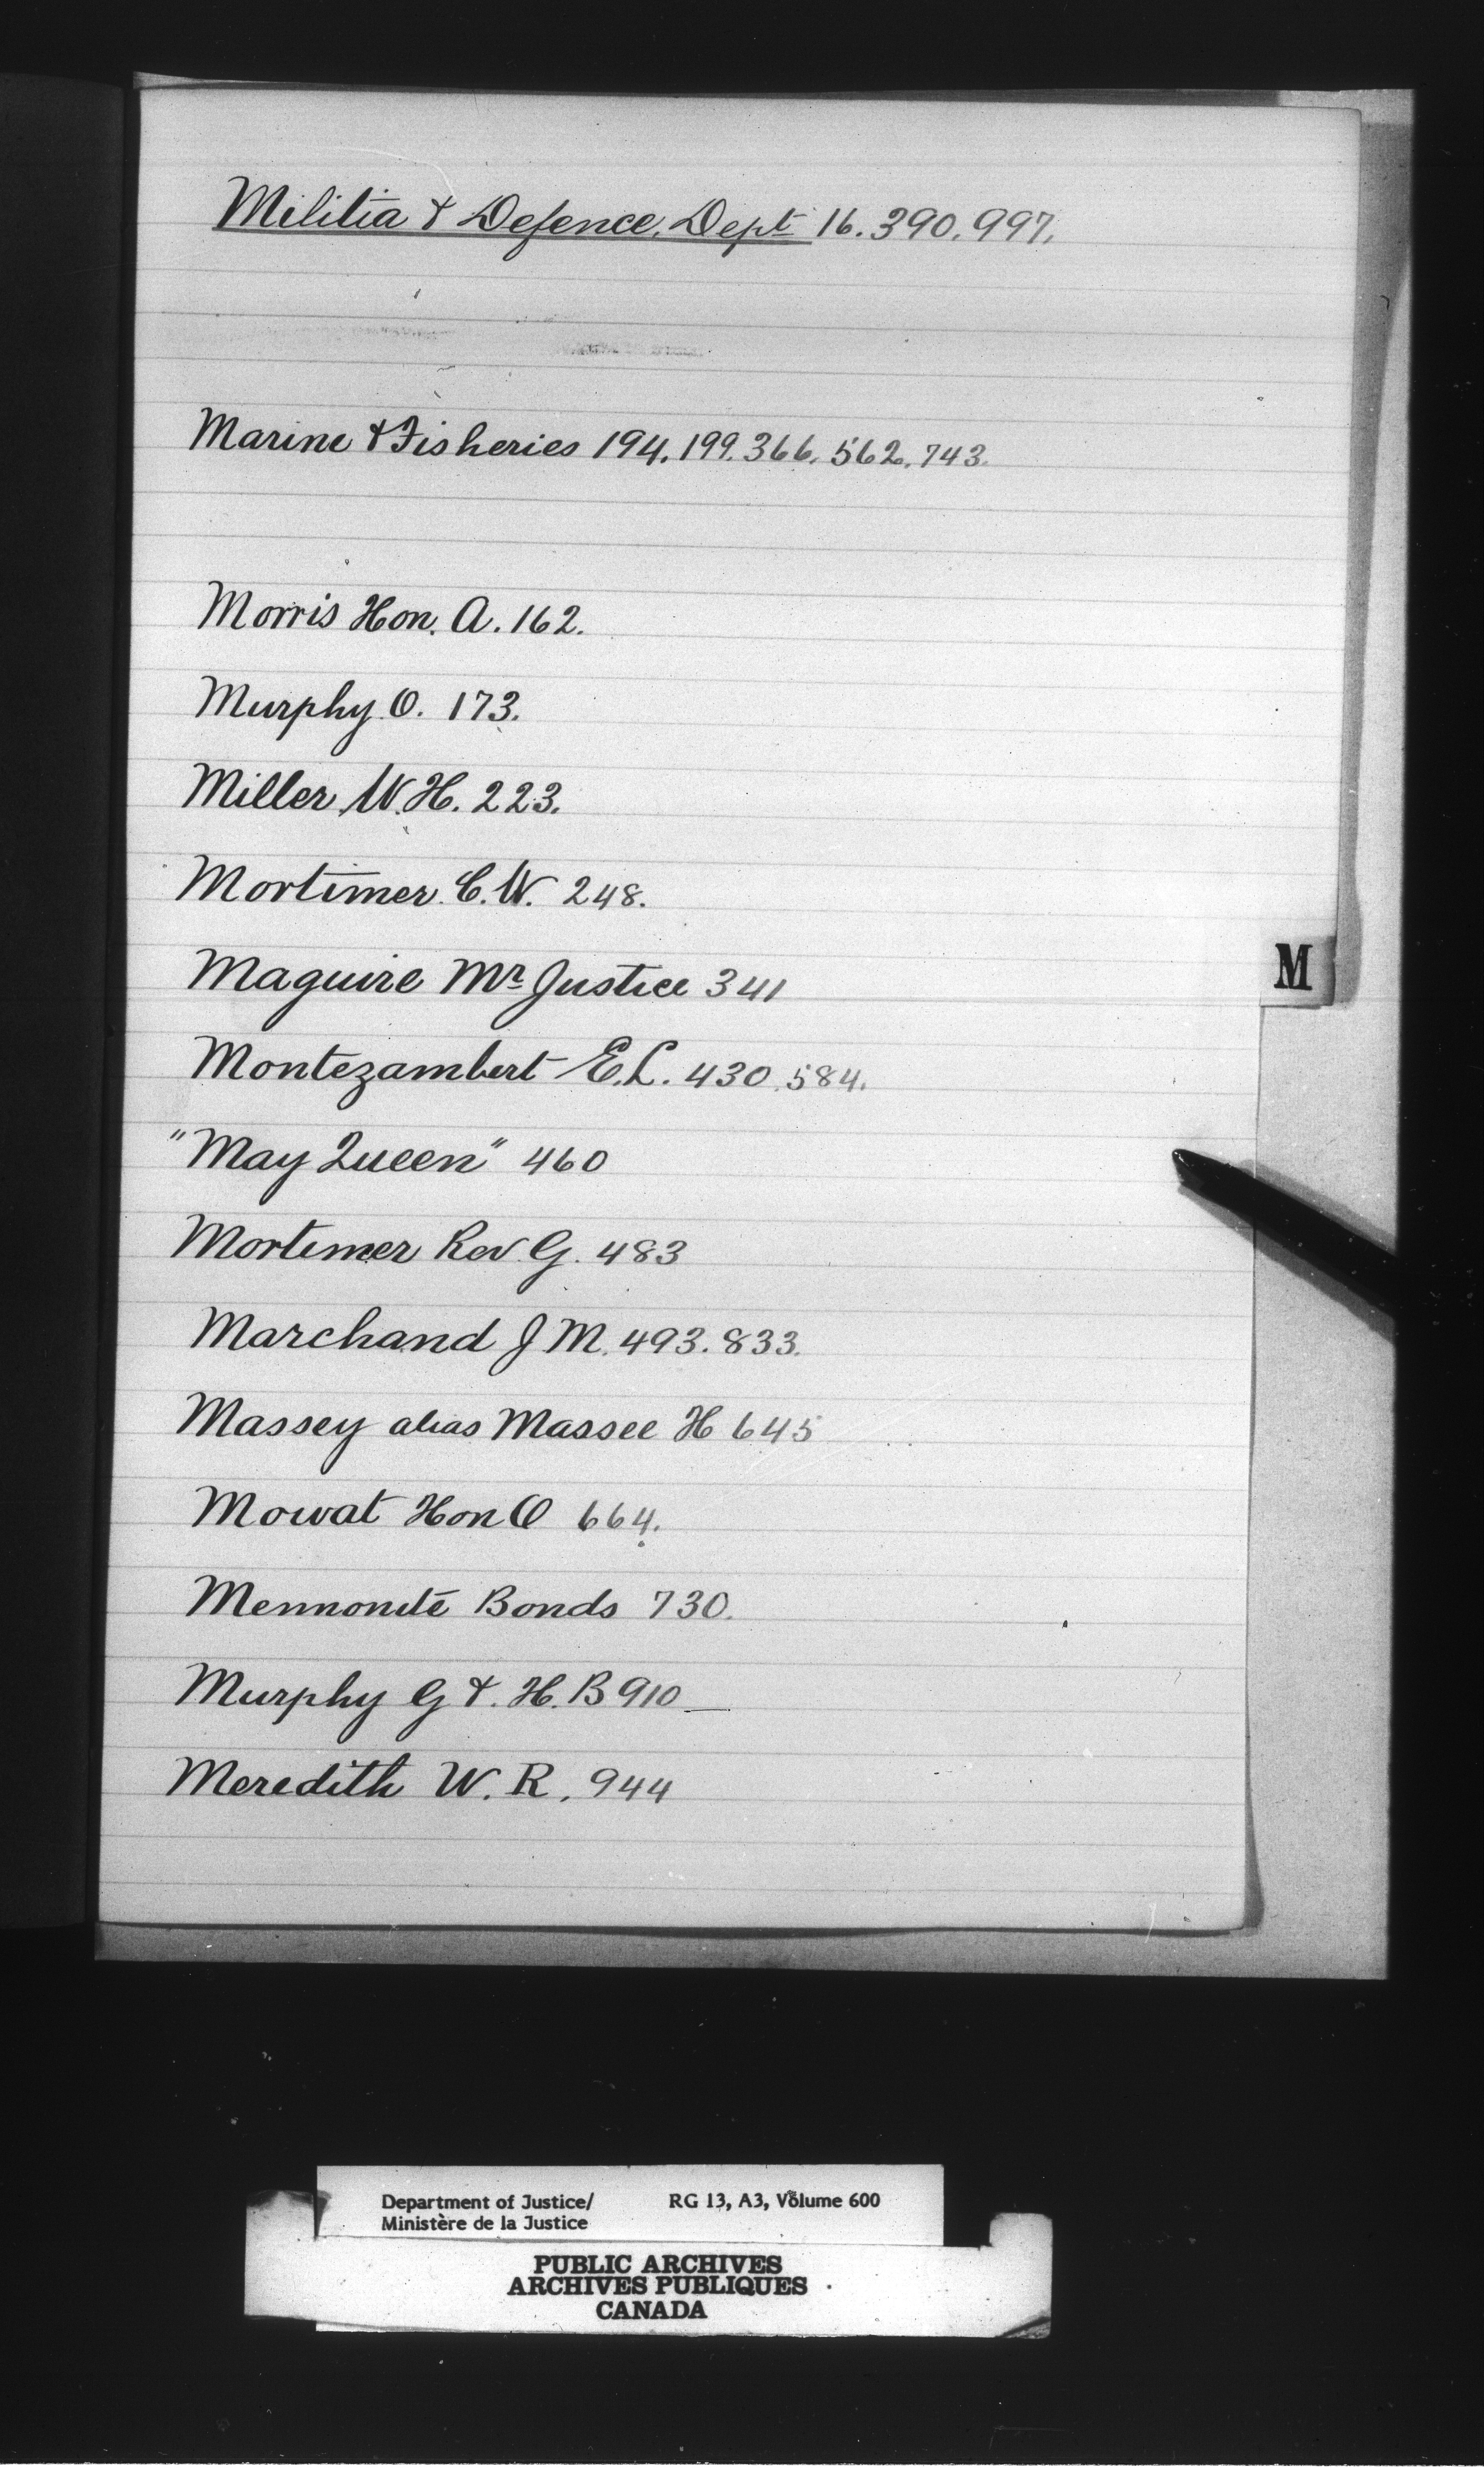 Militia & Defence, Dept 16. 390. 997.
Marine & Fisheries 194. 199. 366. 562. 743.
Morris Hon. A. 162.
Murphy O. 173.
Miller W. H. 223.
Mortimer C. W. 248.
Maguire Mr Justice 341
Montezambert E. L. 430. 584.
M
"May Queen" 460
Mortimer Rev. G. 483
Marchand J M. 493. 833.
Massey alias Massee H 645
Mowat Hon O 664.
Mennonite Bonds 730.
Murphy G &. H. B 910
Meredith W. R. 944
Department of Justice/ RG 13, A3, Volume 600
Ministère de la Justice
PUBLIC ARCHIVES
ARCHIVES PUBLIQUES
CANADA